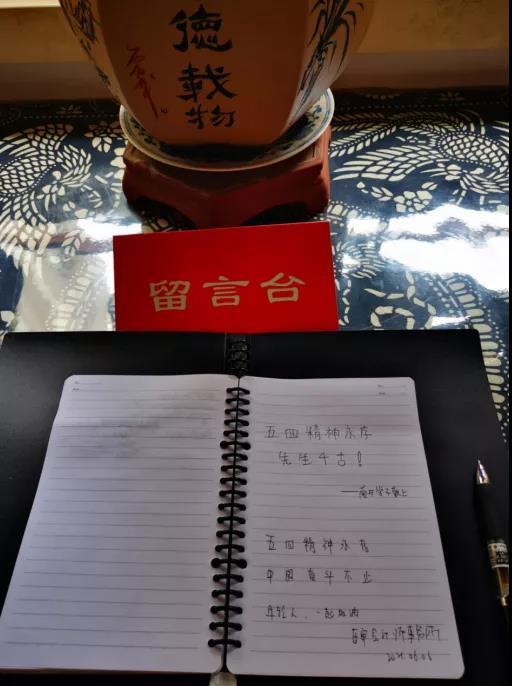 德
載
物
留言台
五四精神永存
先生千古!
五四精神永存
中国奋斗不止
年轻人,一起加油
2021.06.05